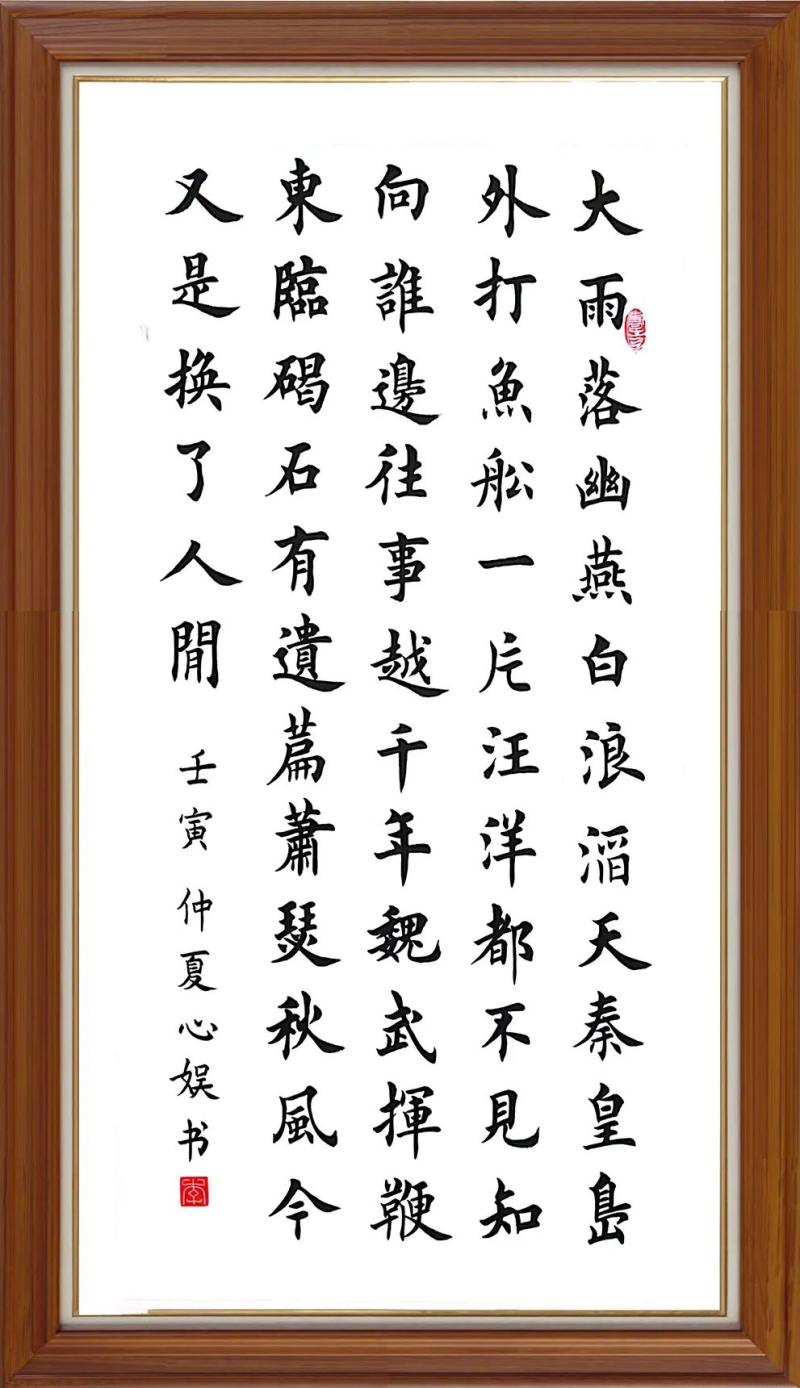 大雨落幽燕白浪滔天秦皇島
外打魚船一片汪洋都不見知
向誰邊往事越千年魏武揮鞭
東臨碣石有遺篇蕭瑟秋風今
又是换了人間
壬寅仲夏心娱书